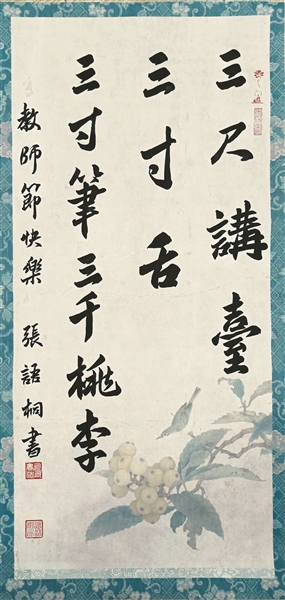 三尺講臺
三寸舌
三寸筆三千桃李
教師節快樂 張語桐書